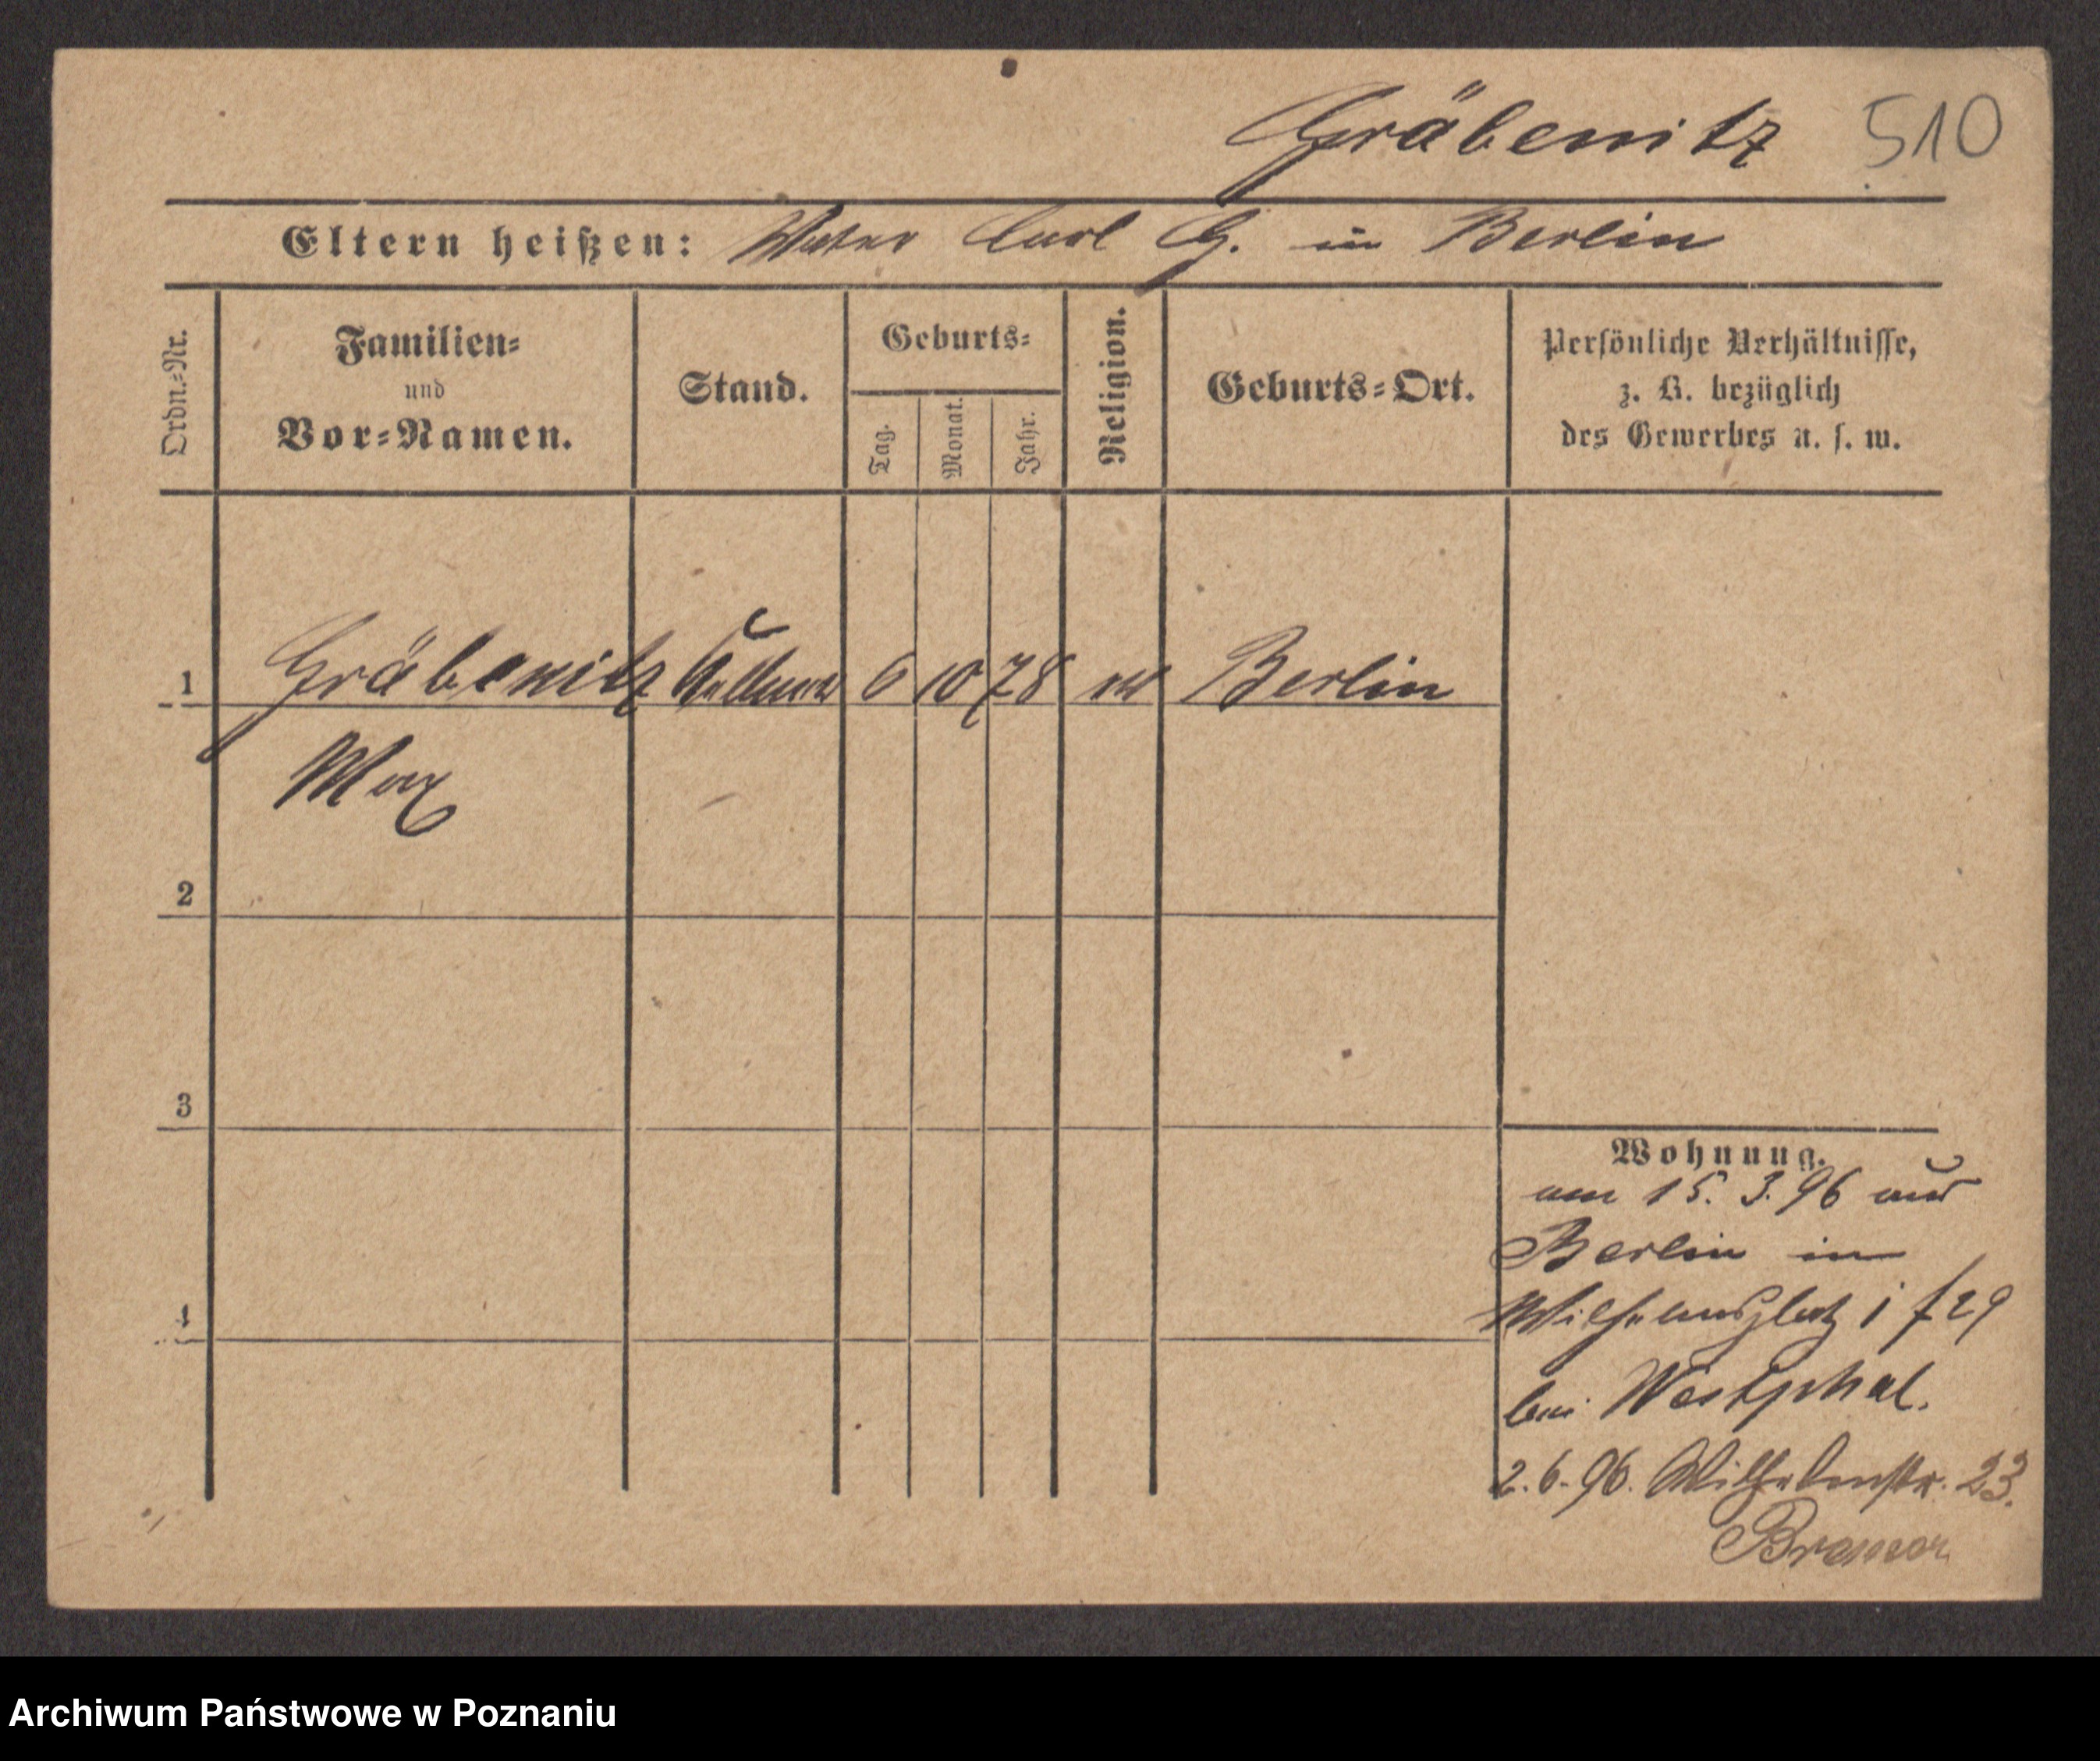 Gräbenitz 510
Eltern heißen: Vater Carl G. in Berlin
Ordn.=Nr.
Familien=
und
Vor=Namen.
Stand.
Geburts=
Tag.
Monat.
Jahr.
Religion.
Geburts=Ort.
Persönliche Verhältnisse,
z. B. bezüglich
des Gewerbes u. s. w.
1 Gräbenitz Kellner 6 10 78 ev Berlin
Max
2
3
4
Wohnung.
am 15. 3. 96 aus
Berlin in
Wilhelmsplatz 29
bei Westphal.
2. 6. 96. Wilhelmstr. 23.
Archiwum Państwowe w Poznaniu